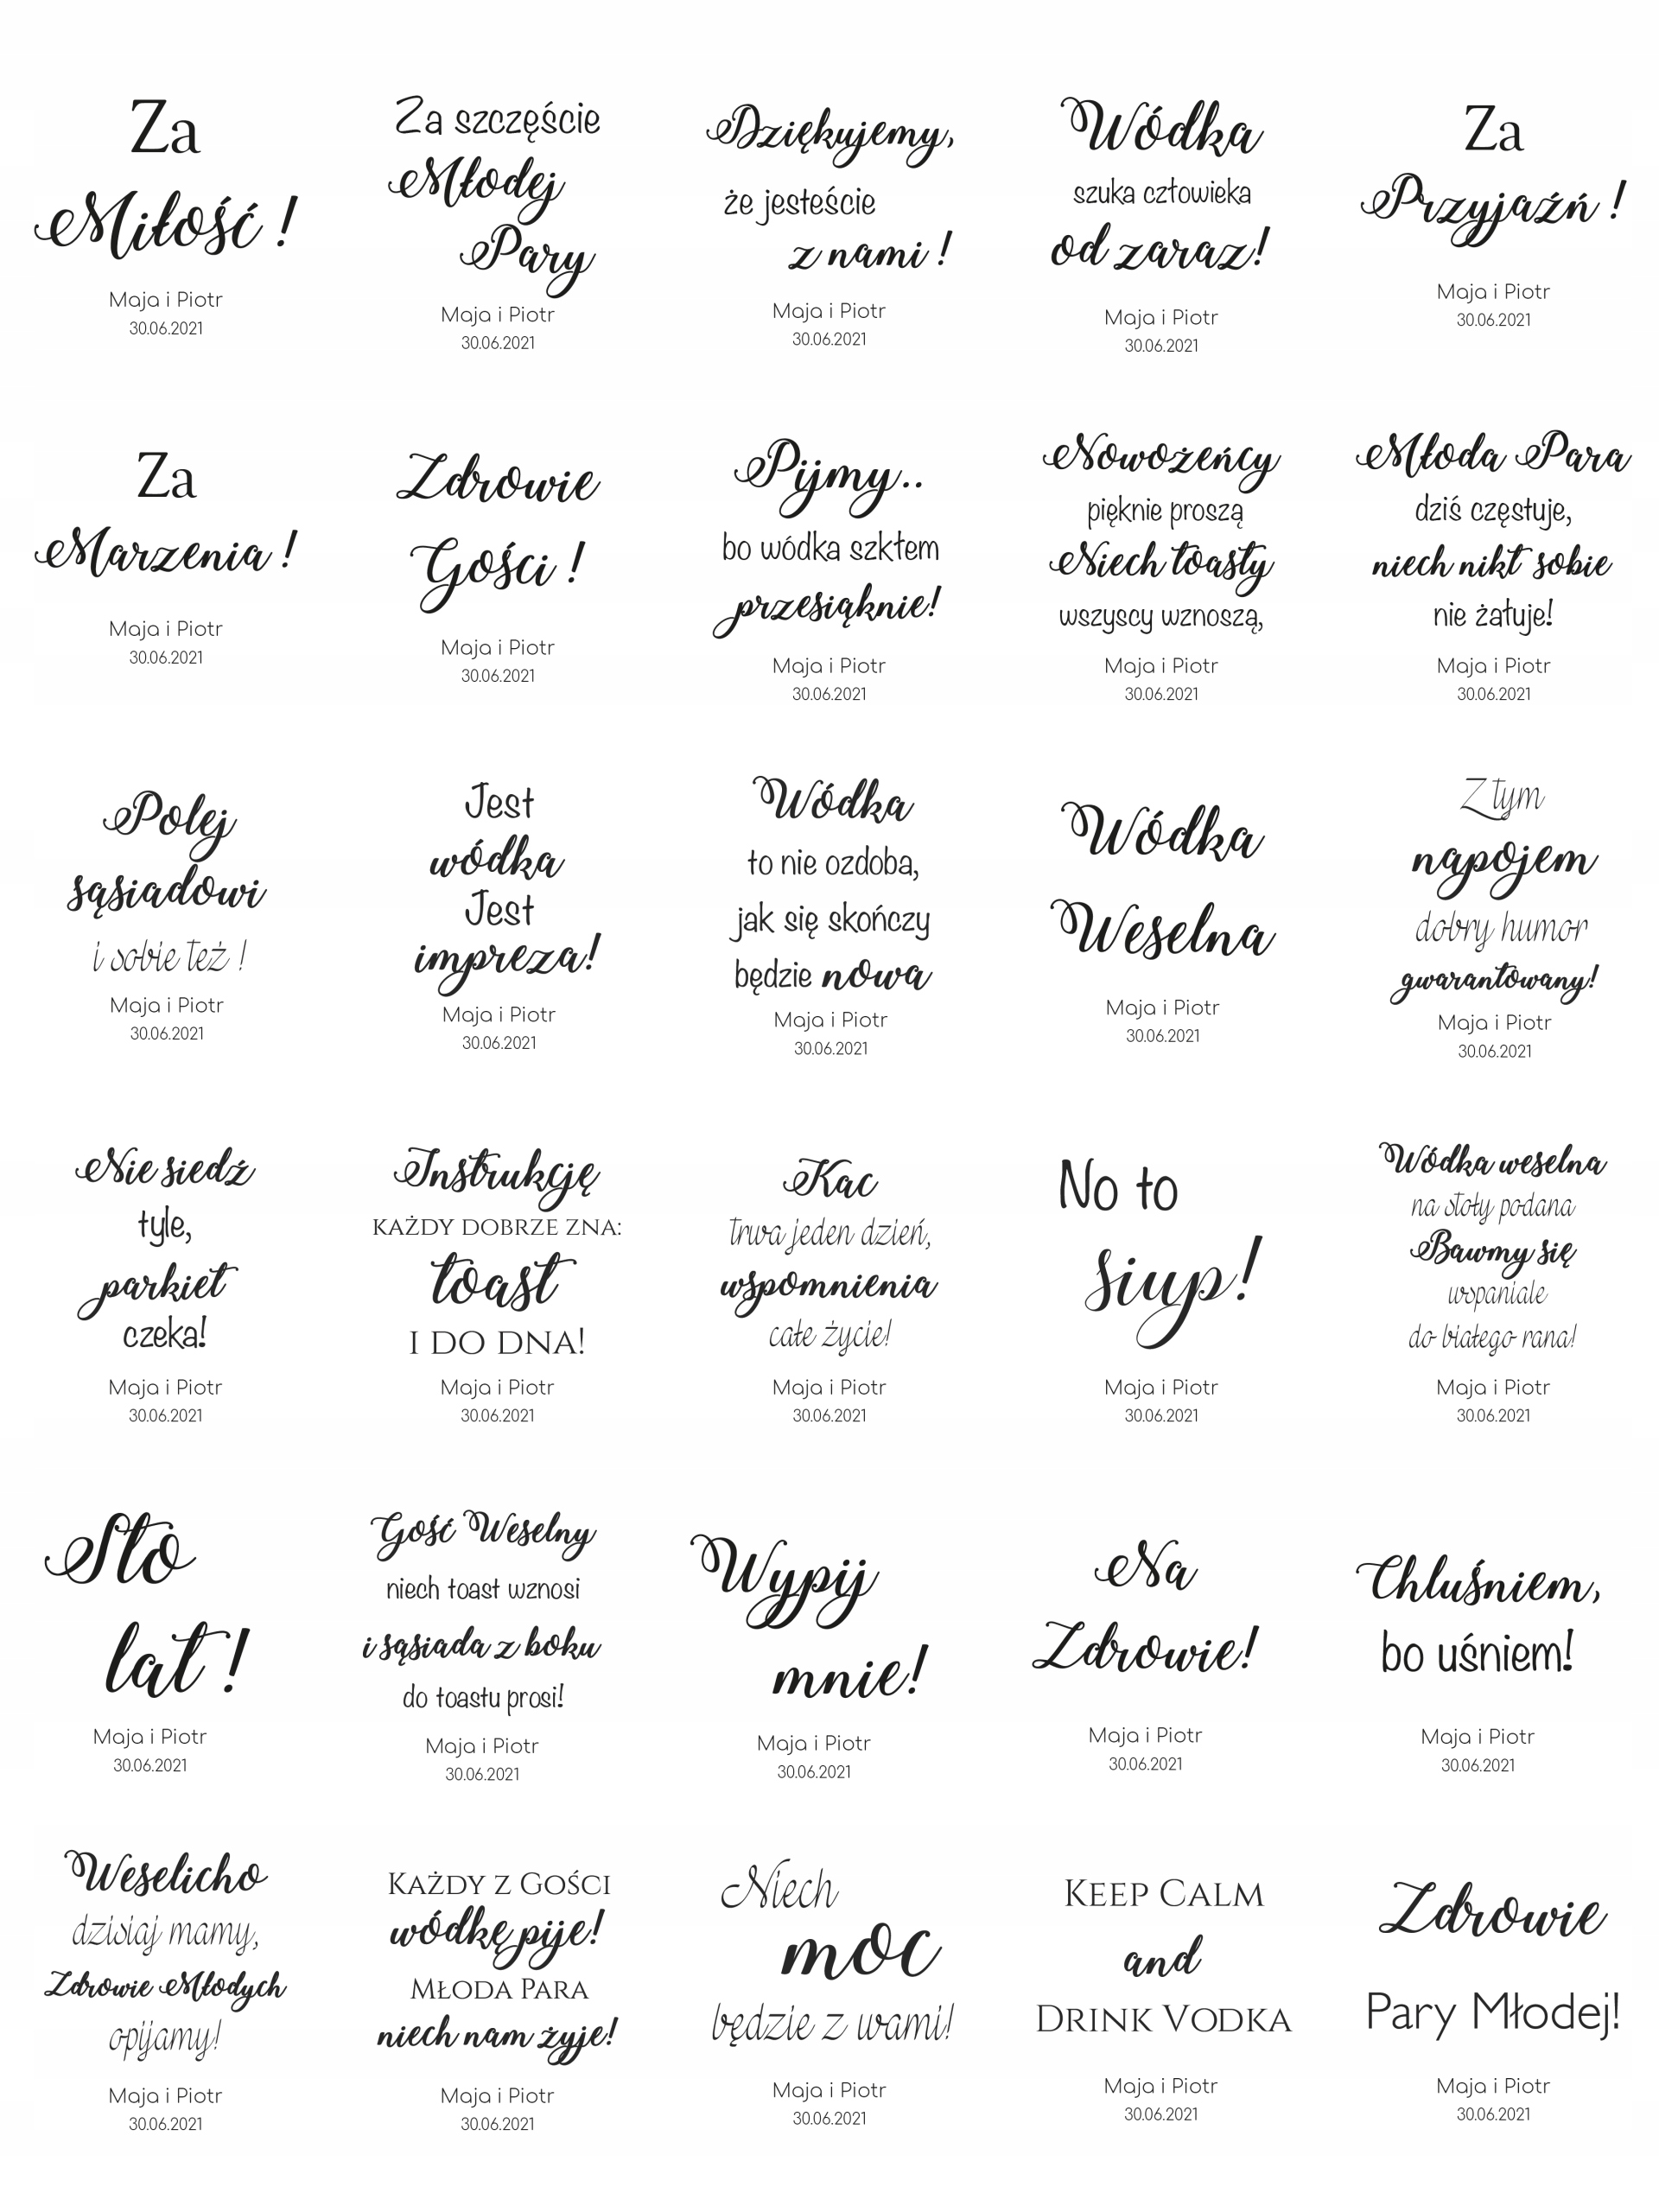 Za
Miłość !
Maja i Piotr
30.06.2021
Za szczęście
Młodej
Pary
Maja i Piotr
30.06.2021
Dziękujemy,
że jesteście
z nami !
Maja i Piotr
30.06.2021
Wódka
szuka człowieka
od zaraz!
Maja i Piotr
30.06.2021
Za
Przyjaźń !
Maja i Piotr
30.06.2021
Za
Marzenia !
Maja i Piotr
30.06.2021
Zdrowie
Gości !
Maja i Piotr
30.06.2021
Pijmy..
bo wódka szkłem
przesiąknie!
Maja i Piotr
30.06.2021
Nowożeńcy
pięknie proszą
Niech toasty
wszyscy wznoszą,
Maja i Piotr
30.06.2021
Młoda Para
dziś częstuje,
niech nikt sobie
nie żałuje!
Maja i Piotr
30.06.2021
Polej
sąsiadowi
i sobie też !
Maja i Piotr
30.06.2021
Jest
wódka
Jest
impreza!
Maja i Piotr
30.06.2021
Wódka
to nie ozdoba,
jak się skończy
będzie nowa
Maja i Piotr
30.06.2021
Wódka
Weselna
Maja i Piotr
30.06.2021
Z tym
napojem
dobry humor
gwarantowany!
Maja i Piotr
30.06.2021
Nie siedź
tyle,
parkiet
czeka!
Maja i Piotr
30.06.2021
Instrukcję
KAŻDY DOBRZE ZNA:
toast
I DO DNA!
Maja i Piotr
30.06.2021
Kac
trwa jeden dzień,
wspomnienia
całe życie!
Maja i Piotr
30.06.2021
No to
siup!
Maja i Piotr
30.06.2021
Wódka weselna
na stoły podana
Bawmy się
wspaniale
do białego rana!
Maja i Piotr
30.06.2021
Sto
lat !
Maja i Piotr
30.06.2021
Gość Weselny
niech toast wznosi
i sąsiada z boku
do toastu prosi!
Maja i Piotr
30.06.2021
Wypij
mnie!
Maja i Piotr
30.06.2021
Na
Zdrowie!
Maja i Piotr
30.06.2021
Chluśniem,
bo uśniem!
Maja i Piotr
30.06.2021
Weselicho
dzisiaj mamy,
Zdrowie Młodych
opijamy!
Maja i Piotr
30.06.2021
KAŻDY Z GOŚCI
wódkę pije!
MŁODA PARA
niech nam żyje!
Maja i Piotr
30.06.2021
Niech
moc
będzie z wami!
Maja i Piotr
30.06.2021
KEEP CALM
and
DRINK VODKA
Maja i Piotr
30.06.2021
Zdrowie
Pary Młodej!
Maja i Piotr
30.06.2021